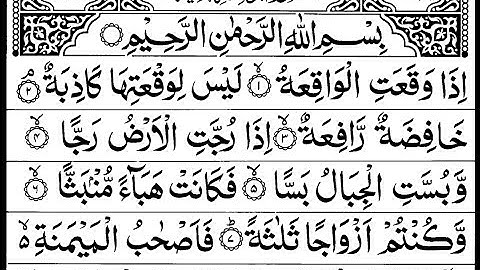 بِسْمِ اللهِ الرَّحْمٰنِ الرَّحِيْمِ
اِذَا وَقَعَتِ الْوَاقِعَةُ ۙ۱ لَيْسَ لِوَقْعَتِهَا كَاذِبَةٌ ۘ۲
خَافِضَةٌ رَّافِعَةٌ ۙ۳ اِذَا رُجَّتِ الْاَرْضُ رَجًّا ۙ۴
وَّبُسَّتِ الْجِبَالُ بَسًّا ۙ۵ فَكَانَتْ هَبَآءً مُّنْۢبَثًّا ۙ۶
وَّكُنْتُمْ اَزْوَاجًا ثَلٰثَةً ؕ۷ فَاَصْحٰبُ الْمَيْمَنَةِ ۵